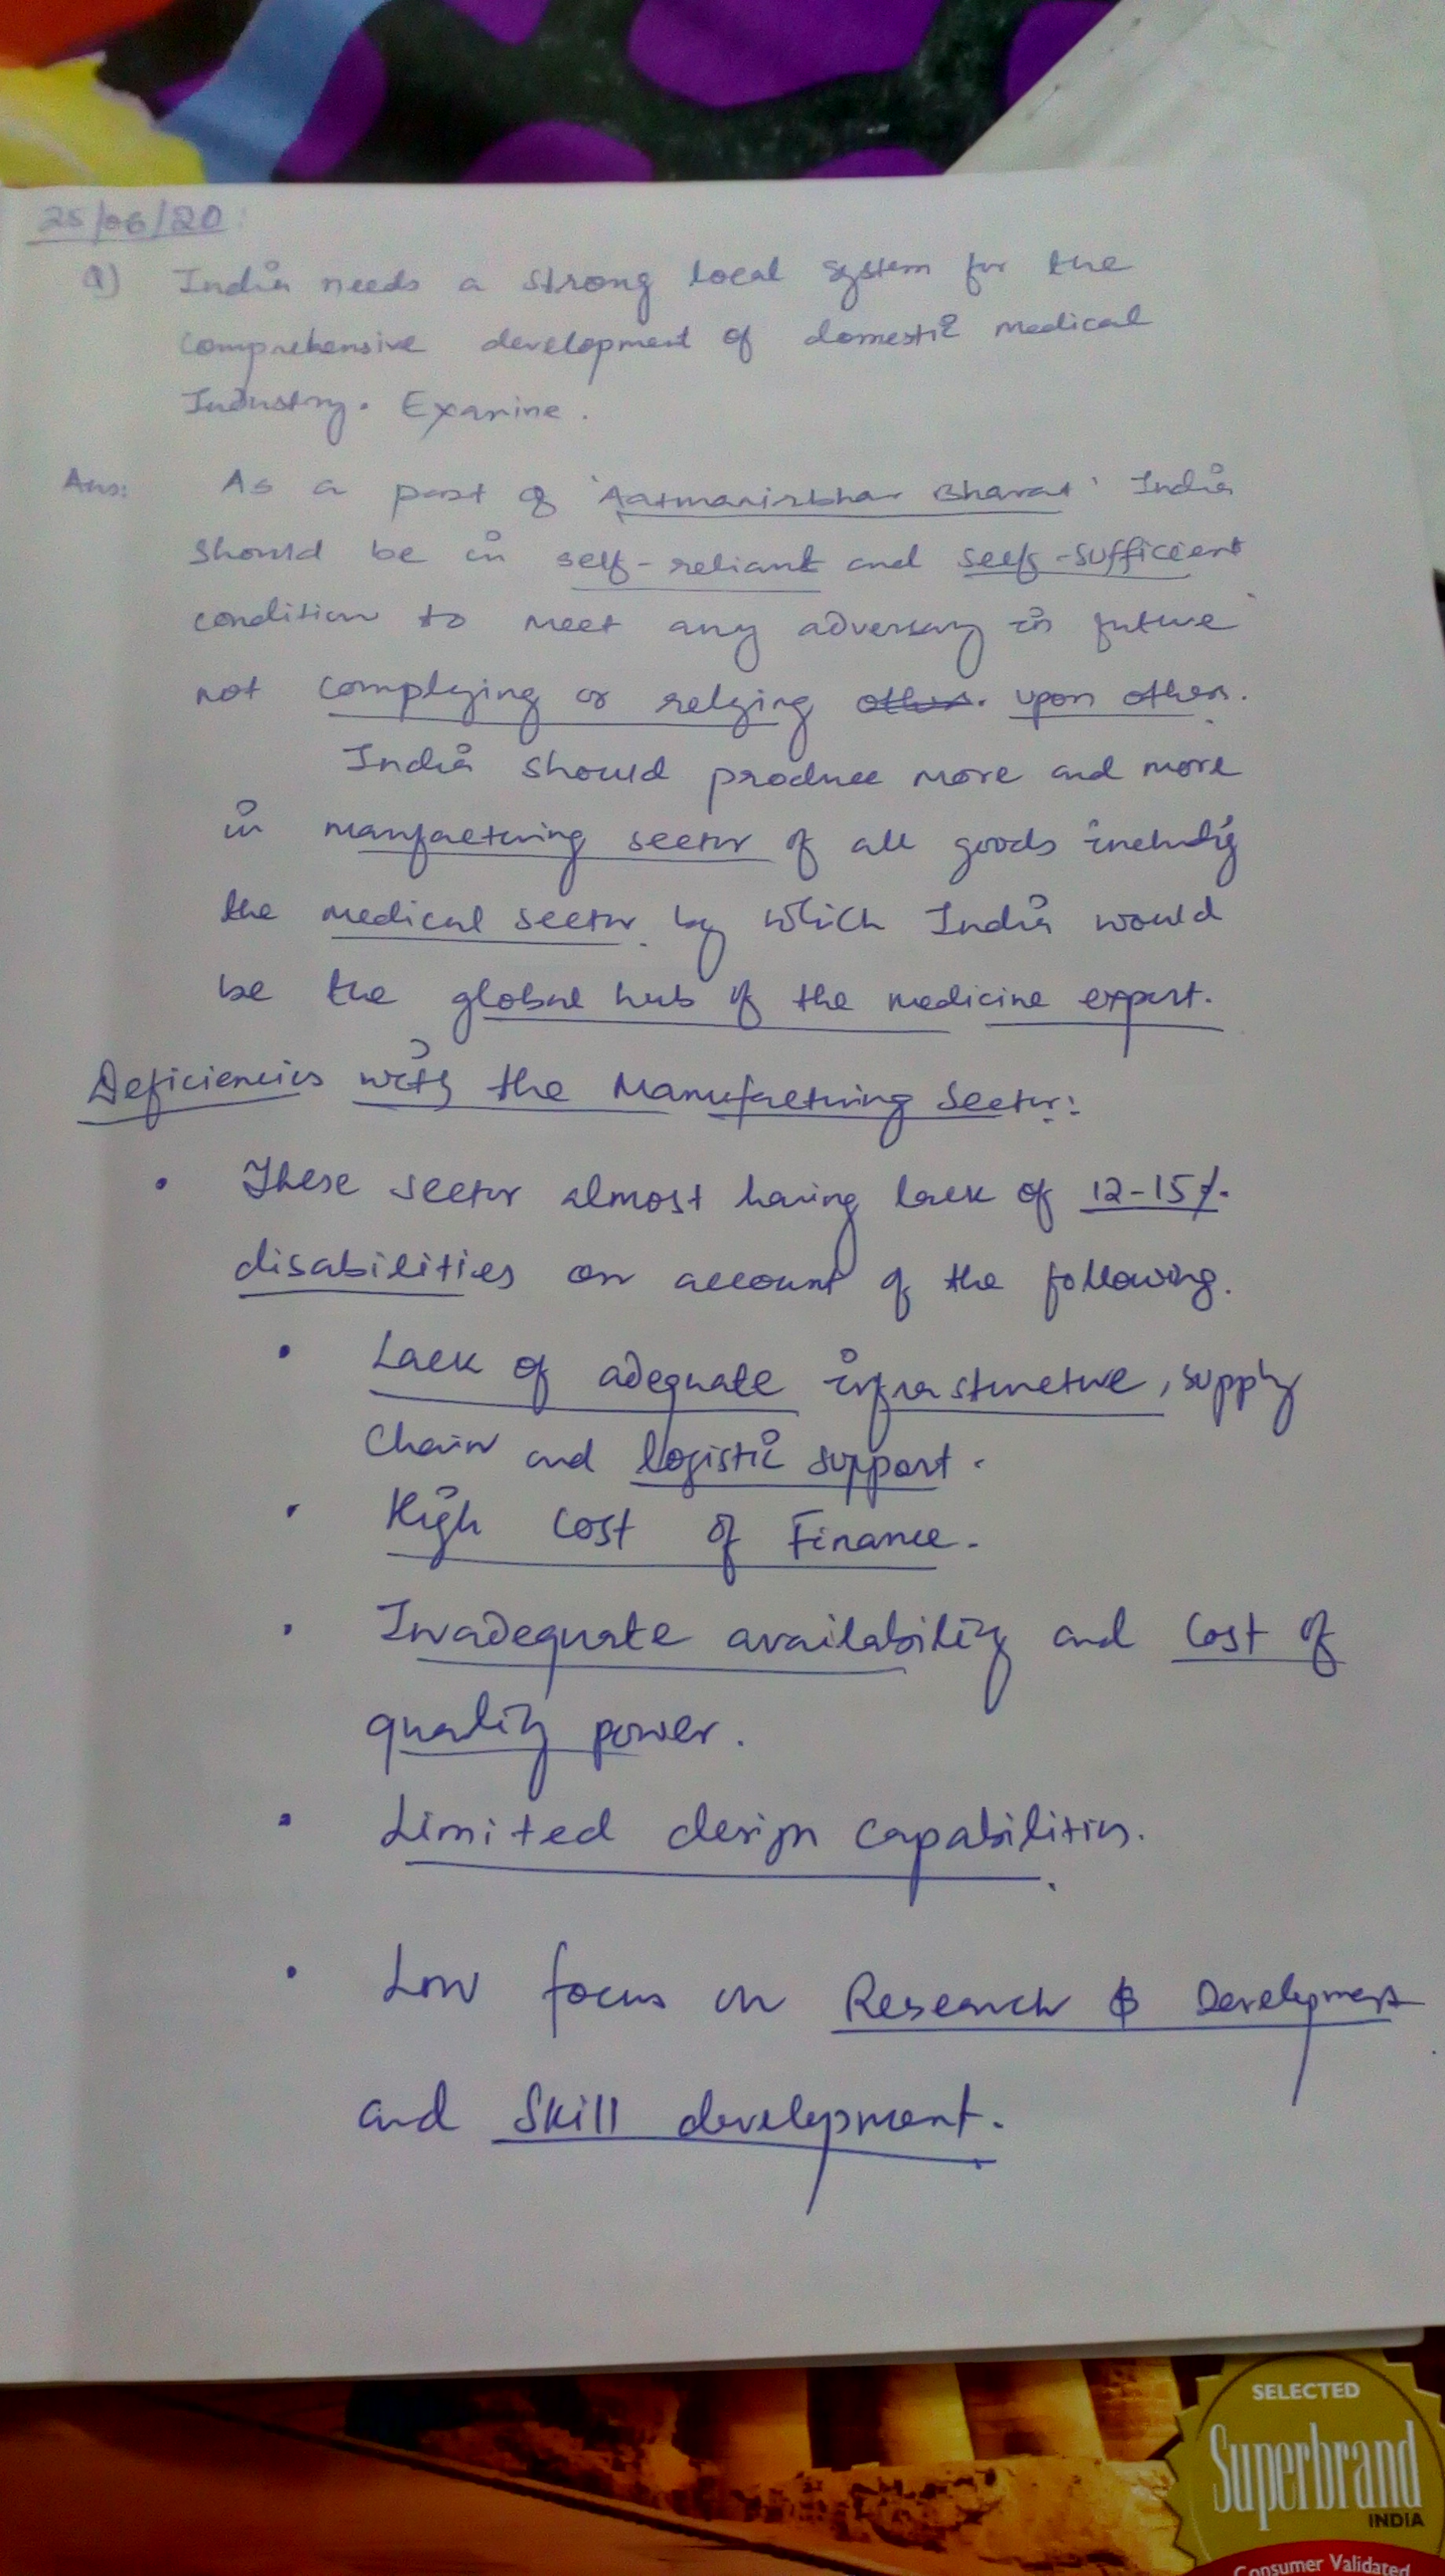 25/06/20
Q) India needs a strong local system for the
comprehensive development of domestic medical
Industry. Examine.
Ans: As a part of 'Aatmanirbhar Bharat' India
should be in self-reliant and self-sufficient
condition to meet any adversary in future
not complying or relying others. upon others.
India should produce more and more
in manfacturing sector of all goods includig
the medical sector by which India would
be the global hub of the medicine export.
Deficiencies with the Manufacturing Sector:
• These sector almost having lack of 12-15%
disabilities on account of the following.
• Lack of adequate infrastructure, supply
Chain and logistic support.
• High cost of Finance.
• Inadequate availability and cost of
quality power.
• Limited design capabilities.
• Low focus on Research & Development
and Skill development.
SELECTED
Superbrand
INDIA
Consumer Validated